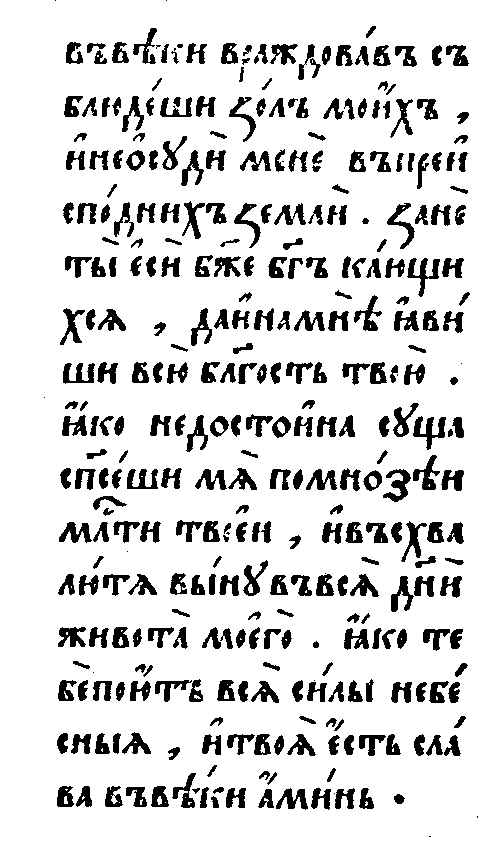 въвѣ́ки враждова́въ съ
блюде́ши ѕо́лъ мои́хъ ,
и҆неѻ҆сѹди̏ менѐ въпреи҆
спо́днихъ ѕемлѝ . ѕанѐ
ты̀ є҆сѝ бж҃е бг҃ъ ка́ющи
хсѧ , даи҆намнѣ̀ ꙗ҆ви́
ши всю̀ блг҃ость твою̀ .
ꙗ҆́ко недостои́на сѹща
сп҃се́ши мѧ̀ помно́ѕѣи
мл҃ти твое́и , и҆въсхва
лю́тѧ вы́нѹвъвсѧ̀ дн҃и
живота̀ моегѡ̀ . ꙗ҆́ко те
бѐпою́тъ всѧ̀ си́лы небе́
сныѧ , и҆твоѧ̀ є҆́сть сла́
ва въвѣ́ки а҆ми́нь .